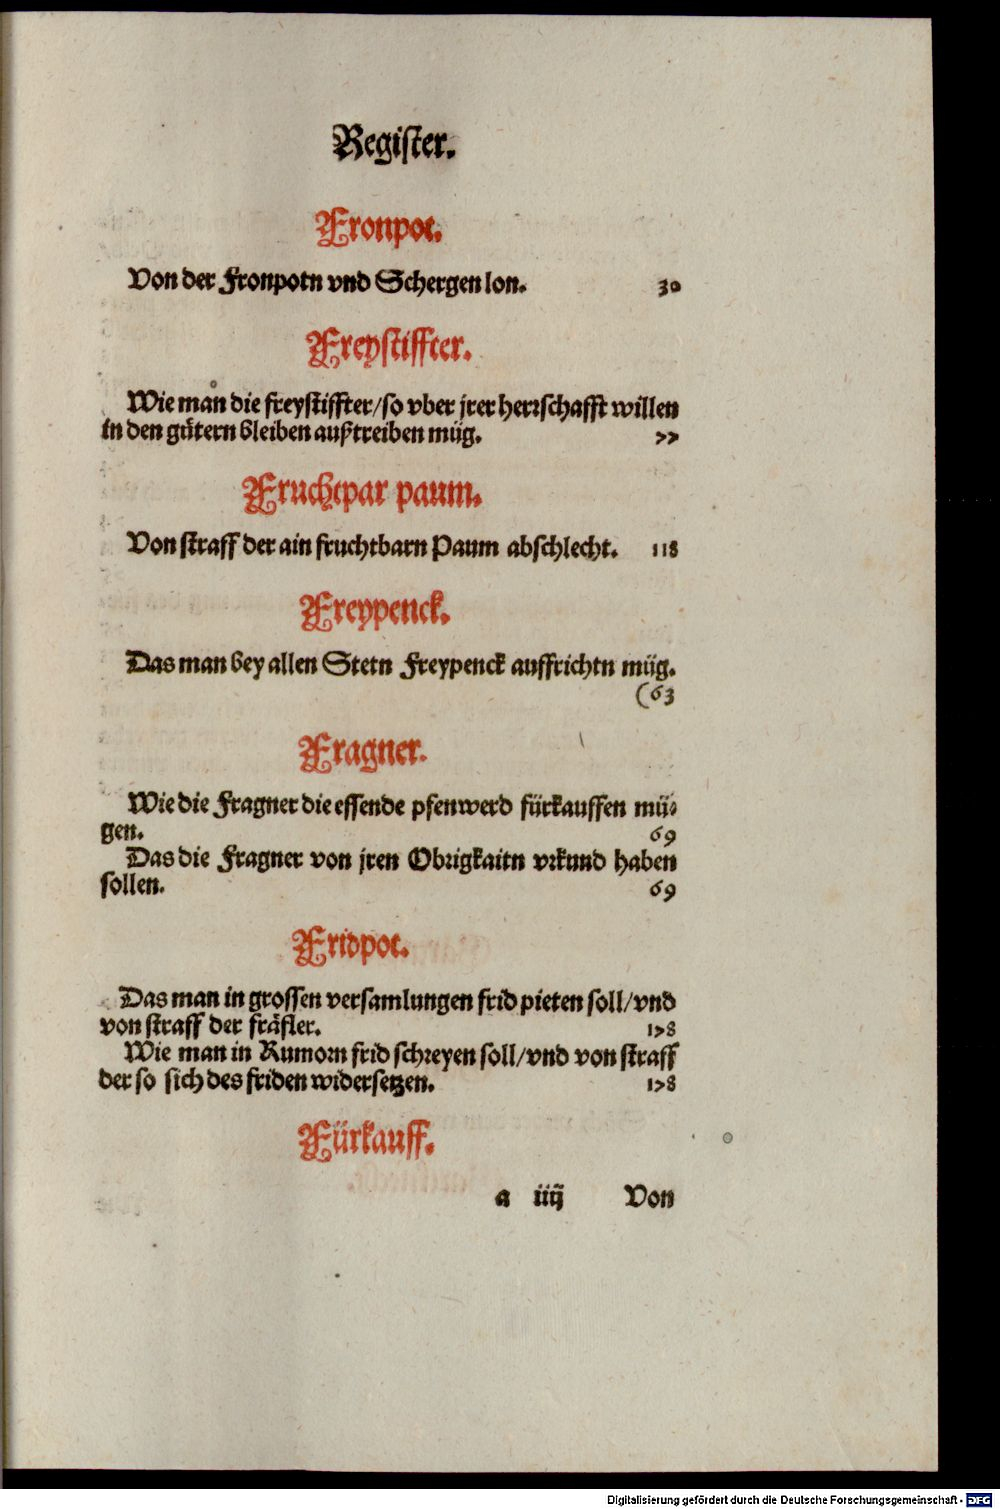 Register.
Fronpot.
Von der Fronpotn vnd Schergen lon. 30
Freystiffter.
Wie man die freystiffter/so vber jrer herrschafft willen
in den gütern bleiben außtreiben müg. 77
Fruchtpar paum.
Von straff der ain fruchtbarn Paum abschlecht. 118
Freypenck.
Das man bey allen Stetn Freypenck auffrichtn müg.
(63
Fragner.
Wie die Fragner die essende pfenwerd fürkauffen mü-
gen. 69
Das die Fragner von jren Obrigkaitn vrkund haben
sollen. 69
Fridpot.
Das man in grossen versamlungen frid pieten soll/vnd
von straff der fräfler. 178
Wie man in Rumorn frid schreyen soll/vnd von straff
der so sich des friden widersetzen. 178
Fürkauff.
a iiij Von
Digitalisierung gefördert durch die Deutsche Forschungsgemeinschaft - DFG